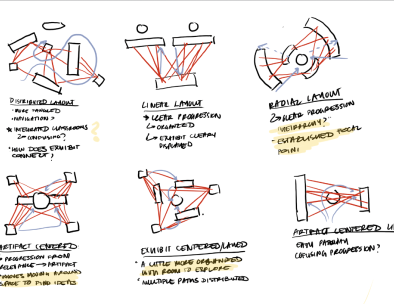 DISTRIBUTED LAYOUT
- MORE INVOLVED
- INVITATION?
* INTEGRATED CLASSROOMS
↳ CONFUSING?
* HOW DOES EXHIBIT
CONNECT?
LINEAR LAYOUT
CLEAR PROGRESSION
↳ ORGANIZED
↳ EXHIBIT CLEARLY
DISPLAYED
RADIAL LAYOUT
CLEAR PROGRESSION
HIERARCHY?
- ESTABLISHED FOCAL
POINT
ARTIFACT CENTERED
PROGRESSION FROM
RELEVANCE → ARTIFACT
AROUND
SPACE TO FIND IDEAS
EXHIBIT CENTERED
• A LITTLE MORE ORGANIZED
WITH ROOM TO EXPLORE
• MULTIPLE PATHS DISTRIBUTED
ARTIFACT CENTERED LI
PATHWAY
CONFUSING PROGRESSION?